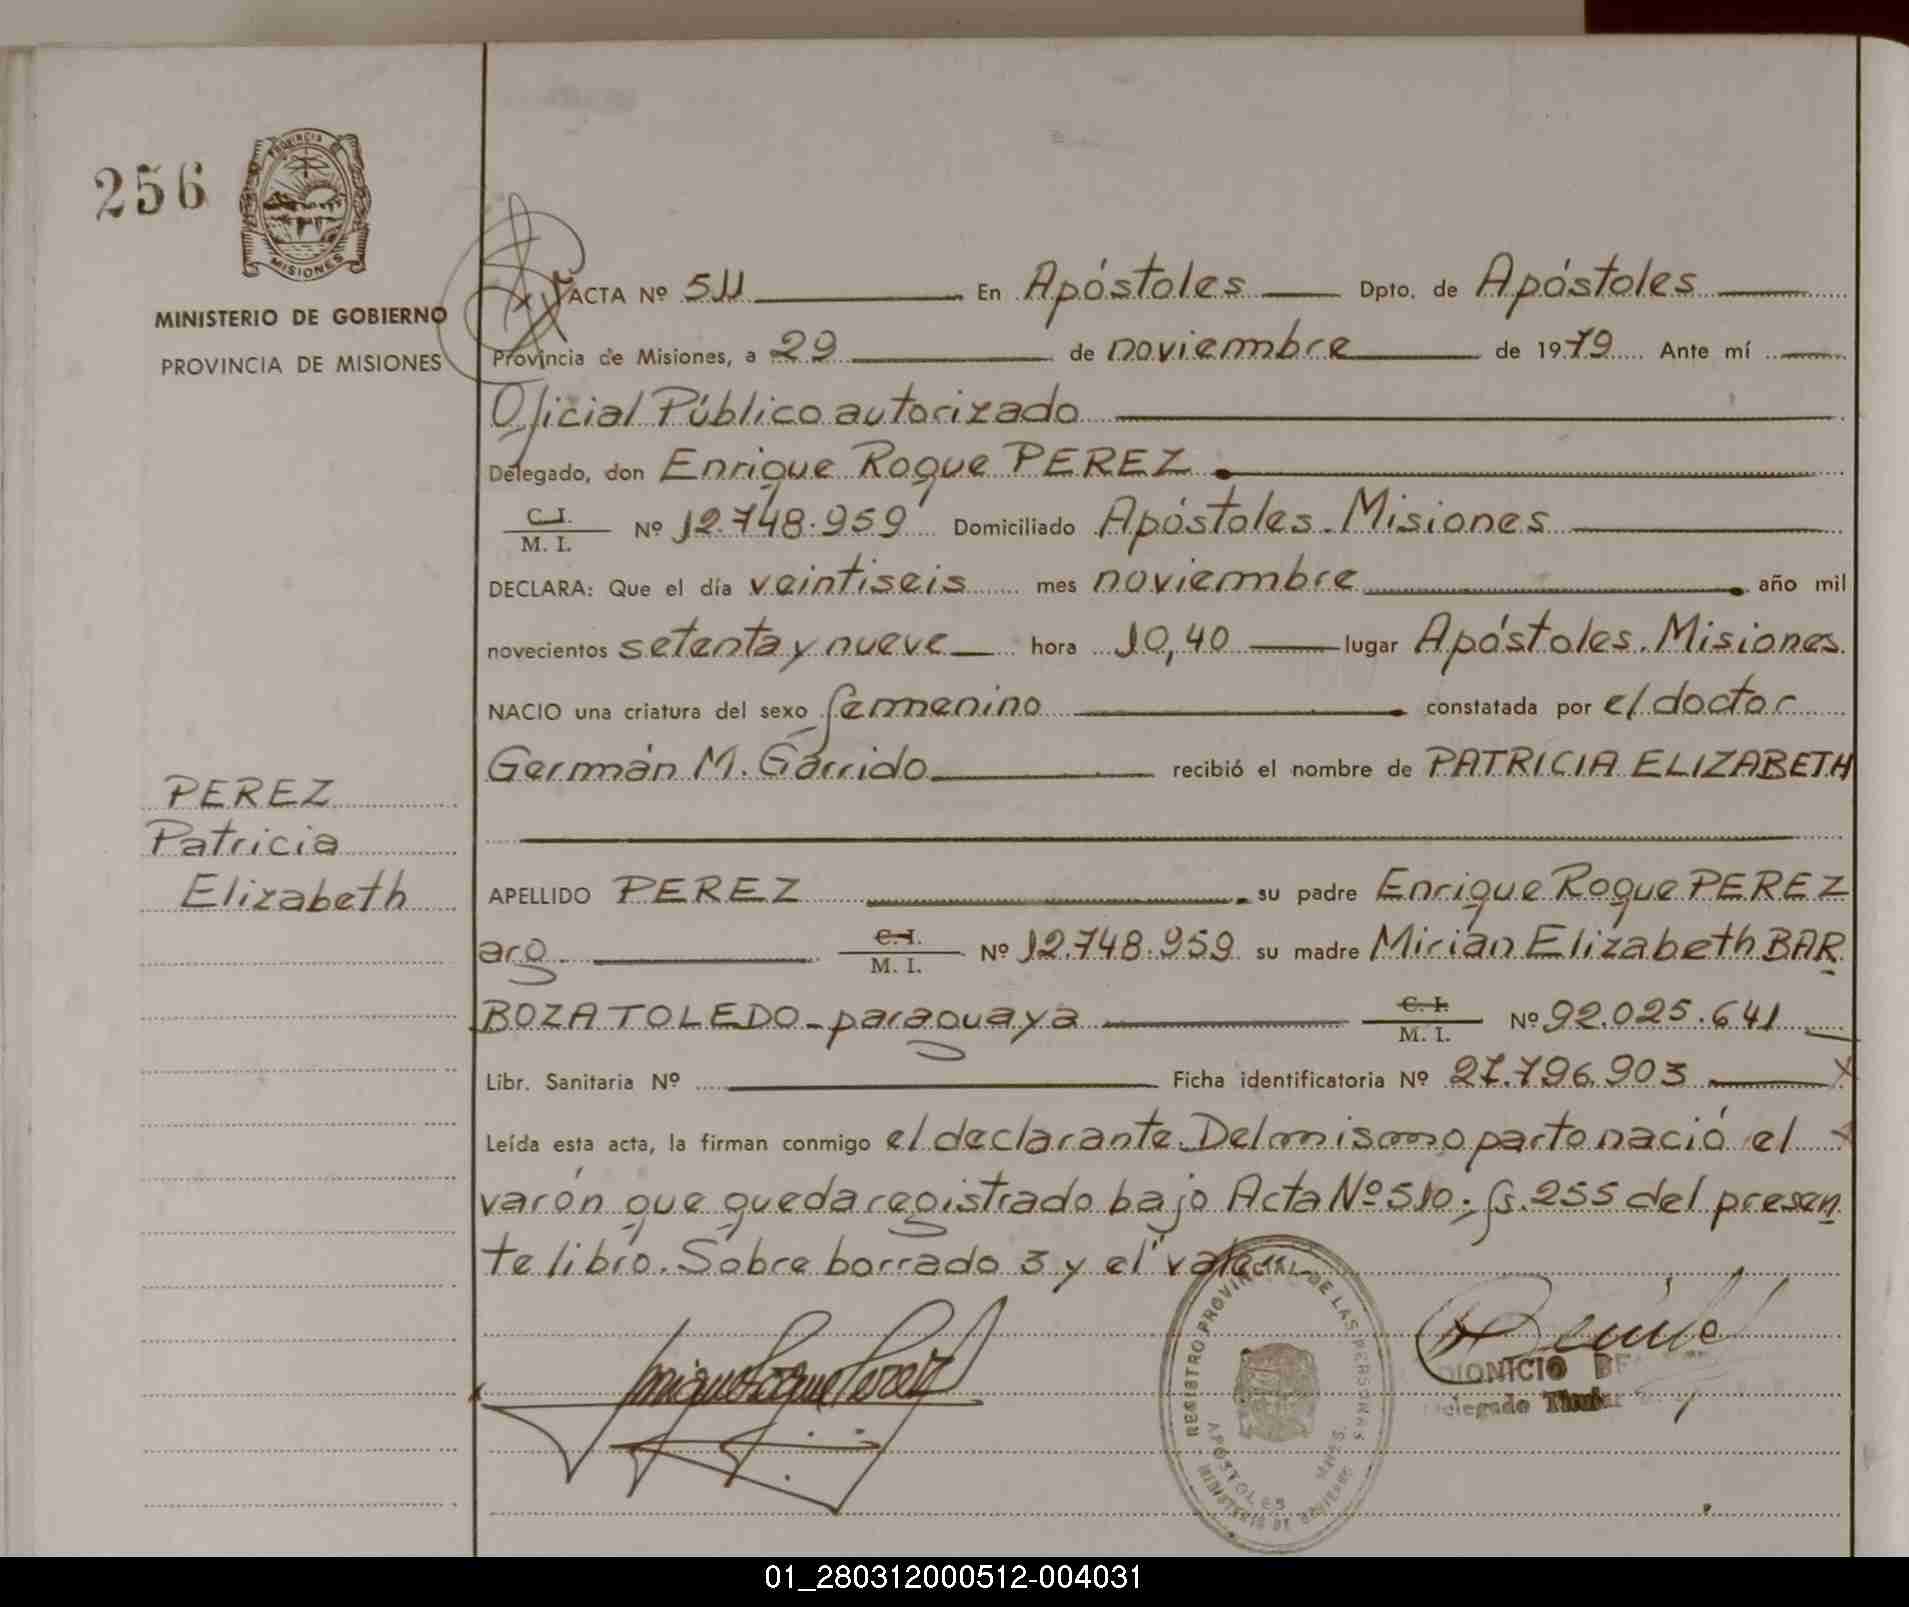 256
PROVINCIA
MISIONES
MINISTERIO DE GOBIERNO
PROVINCIA DE MISIONES
ACTA Nº 511 En Apóstoles Dpto. de Apóstoles
Provincia de Misiones, a 29 de noviembre de 1979 Ante mí
Oficial Público autorizado
Delegado, don Enrique Roque PEREZ
C. I.
M. I. Nº 12.748.959 Domiciliado Apóstoles. Misiones
DECLARA: Que el día veintiseis mes noviembre año mil
novecientos setenta y nueve hora 10,40 lugar Apóstoles. Misiones
NACIO una criatura del sexo femenino constatada por el doctor
Germán M. Garrido recibió el nombre de PATRICIA ELIZABETH
PEREZ
Patricia
Elizabeth
APELLIDO PEREZ su padre Enrique Roque PEREZ
arg. C. I.
M. I. Nº 12.748.959 su madre Mirian Elizabeth BAR
BOZA TOLEDO - paraguaya C. I.
M. I. Nº 92.025.641
Libr. Sanitaria Nº Ficha identificatoria Nº 27.796.903
Leída esta acta, la firman conmigo el declarante. Del mismo parto nació el
varón que queda registrado bajo Acta Nº 510. fs. 255 del presen
te libro. Sobre borrado 3 y el "vale"
REGISTRO PROVINCIAL DE LAS PERSONAS
APOSTOLES
MNES.
MINISTERIO DE GOBIERNO
DIONICIO
Delegado Titular
01_280312000512-004031